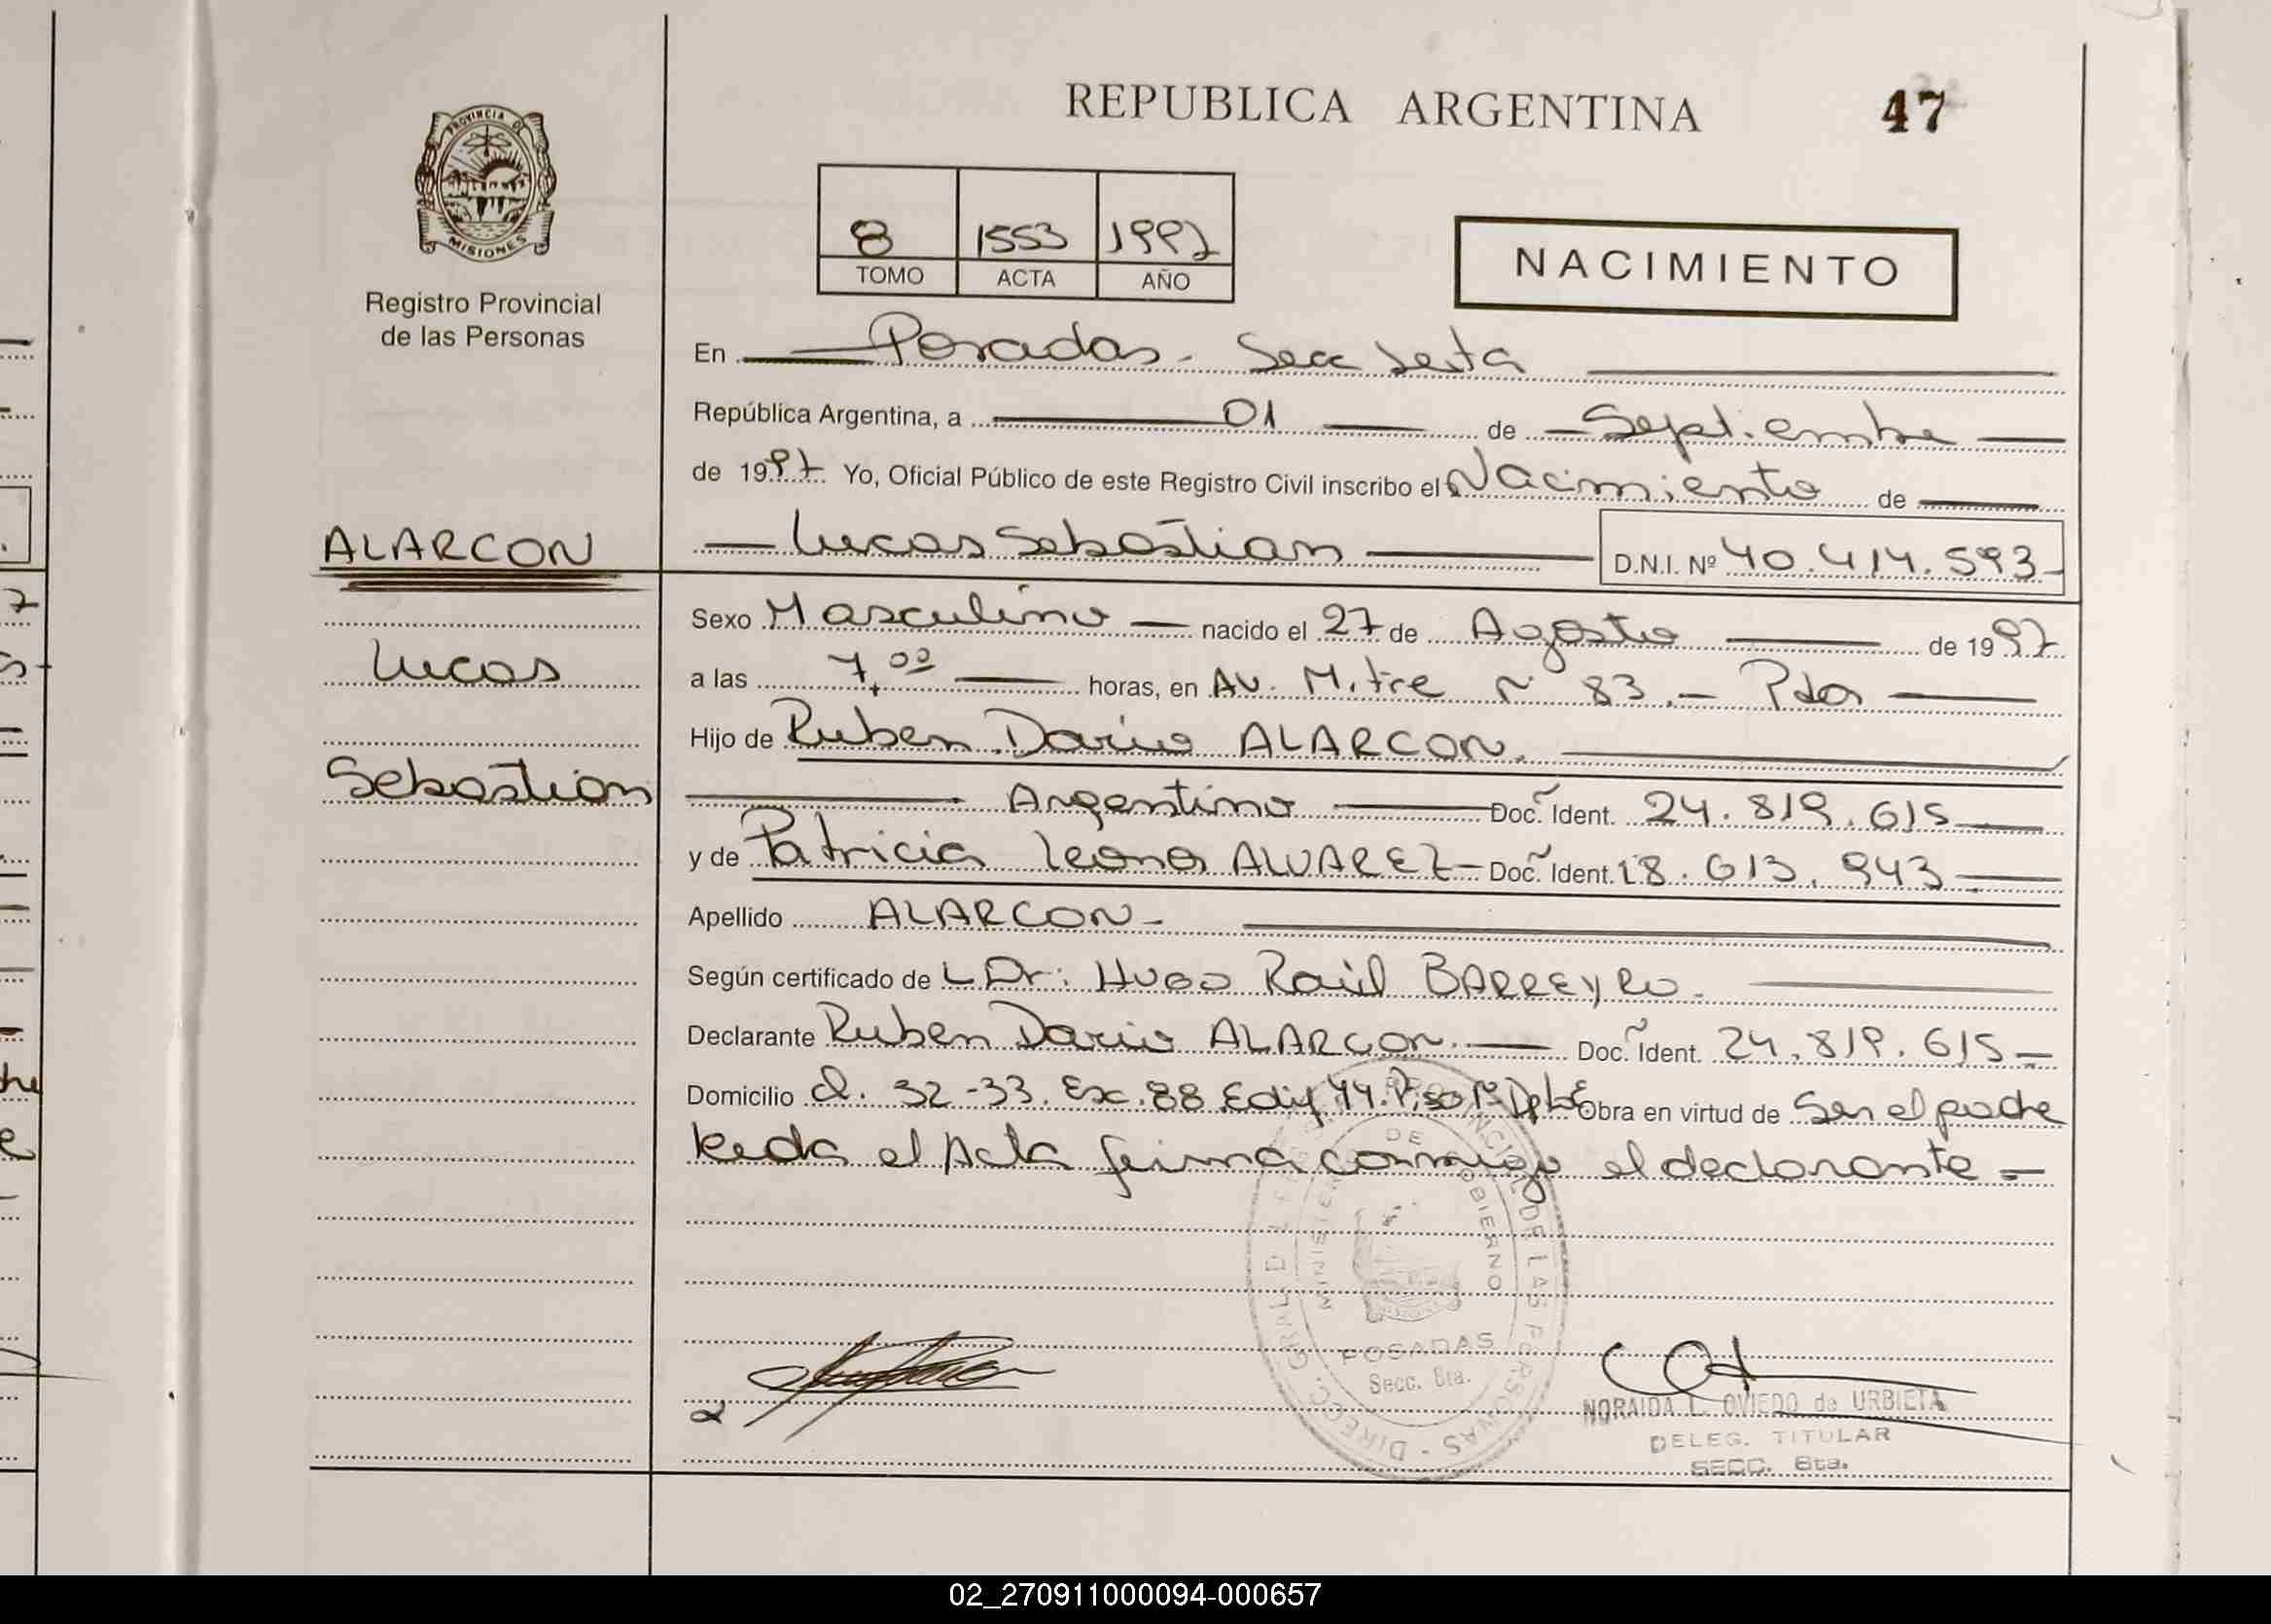 REPUBLICA ARGENTINA 47
PROVINCIA DE
MISIONES
Registro Provincial
de las Personas
8 1553 1997
TOMO ACTA AÑO
NACIMIENTO
En Posadas - Secc Sexta
República Argentina, a 01 de Septiembre
de 1997 Yo, Oficial Público de este Registro Civil inscribo el Nacimiento de
ALARCON
Lucas Sebastian D.N.I. Nº 40.414.593
Sexo Masculino nacido el 27 de Agosto de 1997
Lucas
a las 7,00 horas, en Av. Mitre Nº 83 - Pdas
Hijo de Ruben Dario ALARCON.
Sebastian
Argentino Doc. Ident. 24.819.615
y de Patricia Leonor ALVAREZ Doc. Ident. 18.613.943
Apellido ALARCON
Según certificado de L Dr: Hugo Raúl BARREYRO.
Declarante Ruben Dario ALARCON. Doc. Ident. 24.819.615
Domicilio Ch. 32-33. Esc. 88. Edif. 44. Piso 1º Dpto E Obra en virtud de Ser el padre
Leida el Acta firma conmigo el declarante
DIRECC. GRAL. DE PROVINCIAL DE LAS PERSONAS
MINISTERIO DE GOBIERNO
POSADAS
Secc. 6ta.
NORAIDA L. OVIEDO de URBIETA
DELEG. TITULAR
SECC. 6ta.
02_270911000094-000657